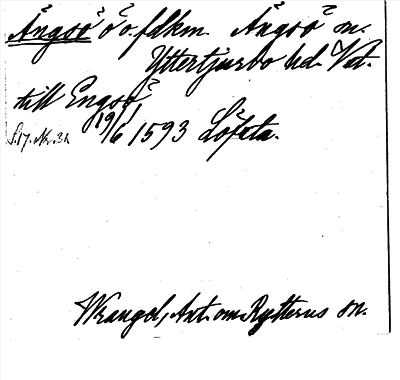 Ängsö ö o. fdkm. Ängsö sn.
Yttertjurbo hd. Vstm.
till Engsö
19/6 1593 Löfsta.
Wrangel, Ant. om Rytterns sn.